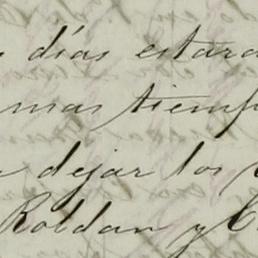 días estara
mas tiemp
dejar los
Roldan y C